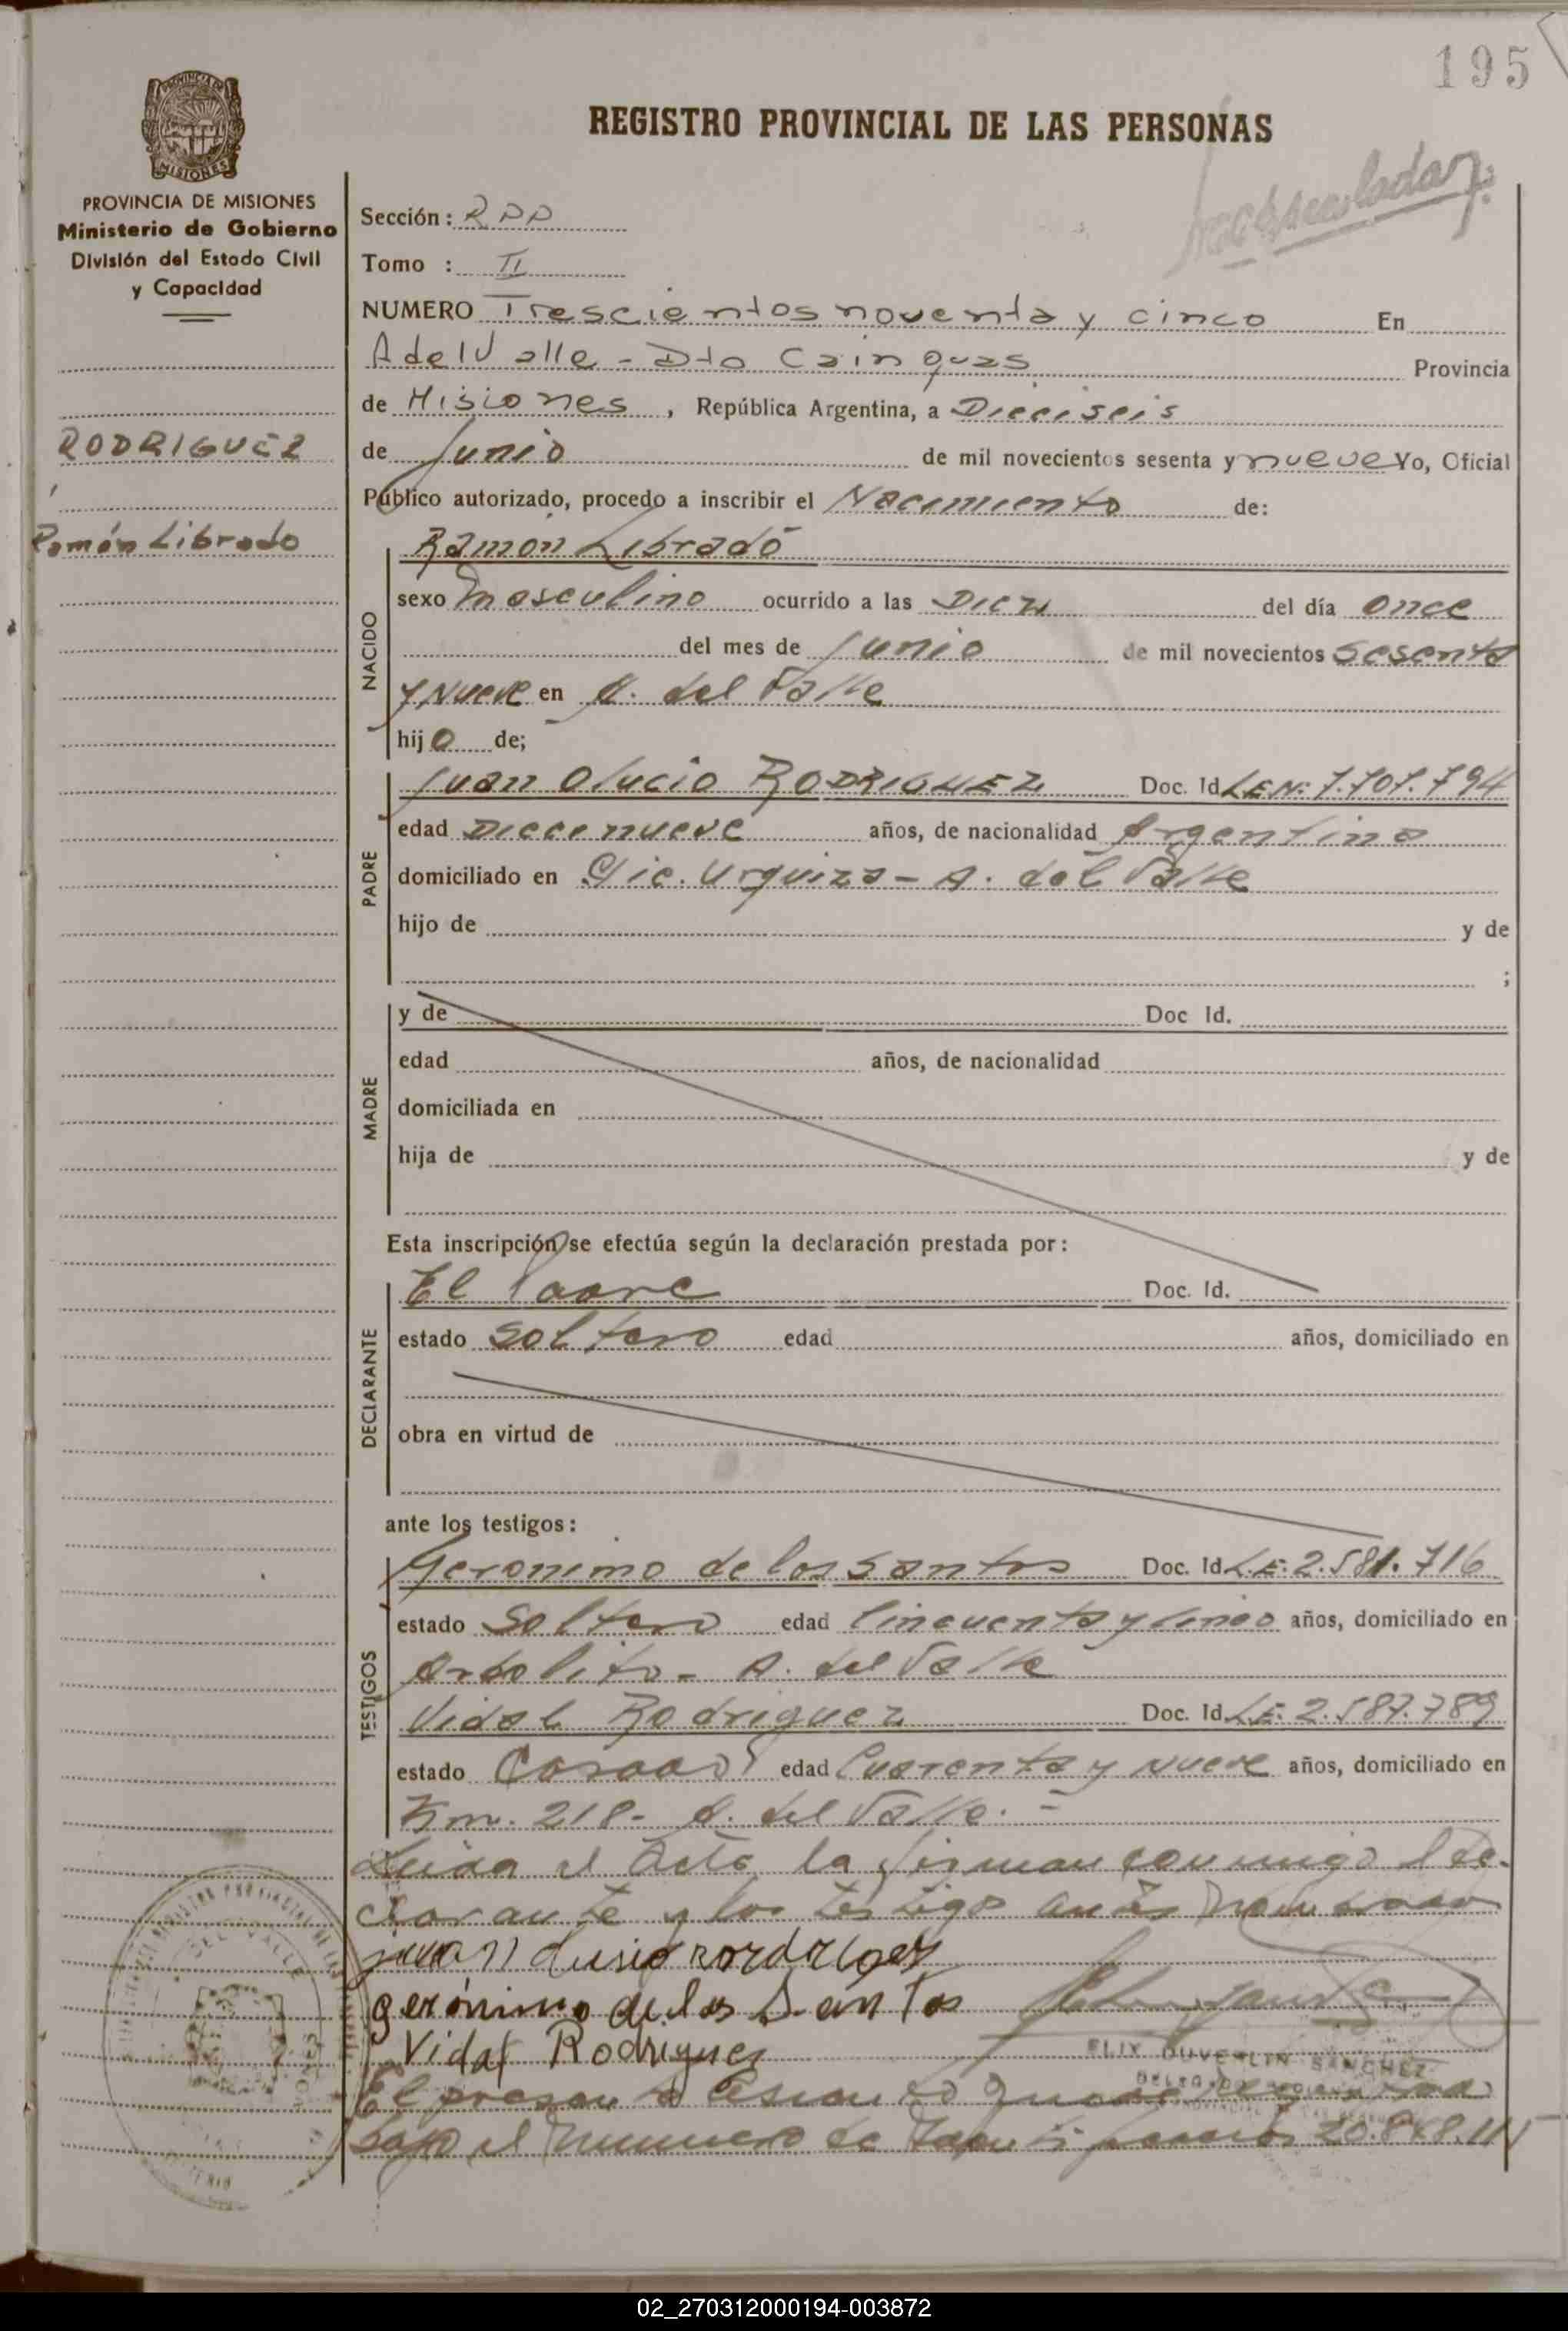 195
PROVINCIA DE
MISIONES
REGISTRO PROVINCIAL DE LAS PERSONAS
PROVINCIA DE MISIONES
Ministerio de Gobierno
División del Estado Civil
y Capacidad
RODRIGUEZ
Ramón Librado
Sección: RPP
Tomo : II
NUMERO Trescientos noventa y cinco En
A del Valle - Dto Cainguas Provincia
de Misiones, República Argentina, a Dieciseis
de Junio de mil novecientos sesenta y nueve Yo, Oficial
Público autorizado, procedo a inscribir el Nacimiento de:
NACIDO
Ramón Librado
sexo Masculino ocurrido a las Diez del día Once
del mes de Junio de mil novecientos Sesenta
y Nueve en A. del Valle
hijo de;
PADRE
Juan Olucio RODRIGUEZ Doc. Id LEN: 7.707.794
edad Diecinueve años, de nacionalidad Argentino
domiciliado en Clic. Urquiza - A. del Valle
hijo de y de
;
MADRE
y de Doc Id.
edad años, de nacionalidad
domiciliada en
hija de y de
Esta inscripción se efectúa según la declaración prestada por:
DECLARANTE
El Padre Doc. Id.
estado Soltero edad años, domiciliado en
obra en virtud de
ante los testigos:
TESTIGOS
Geronimo de los Santos Doc. Id L.E: 2.581.716
estado Soltero edad Cincuenta y Cinco años, domiciliado en
A. del Valle
Vidal Rodriguez Doc. Id L.E: 2.587.789
estado Casado edad Cuarenta y Nueve años, domiciliado en
Km. 218 - A. del Valle. -
Leida el Acta, la firman conmigo el dec-
larante y los testigo antes
juan lusio rordriges
gerónimo de los Santos
Vidal Rodriguez
FELIX DUVERLIN SANCHEZ
El
bajo el numero de
02_270312000194-003872